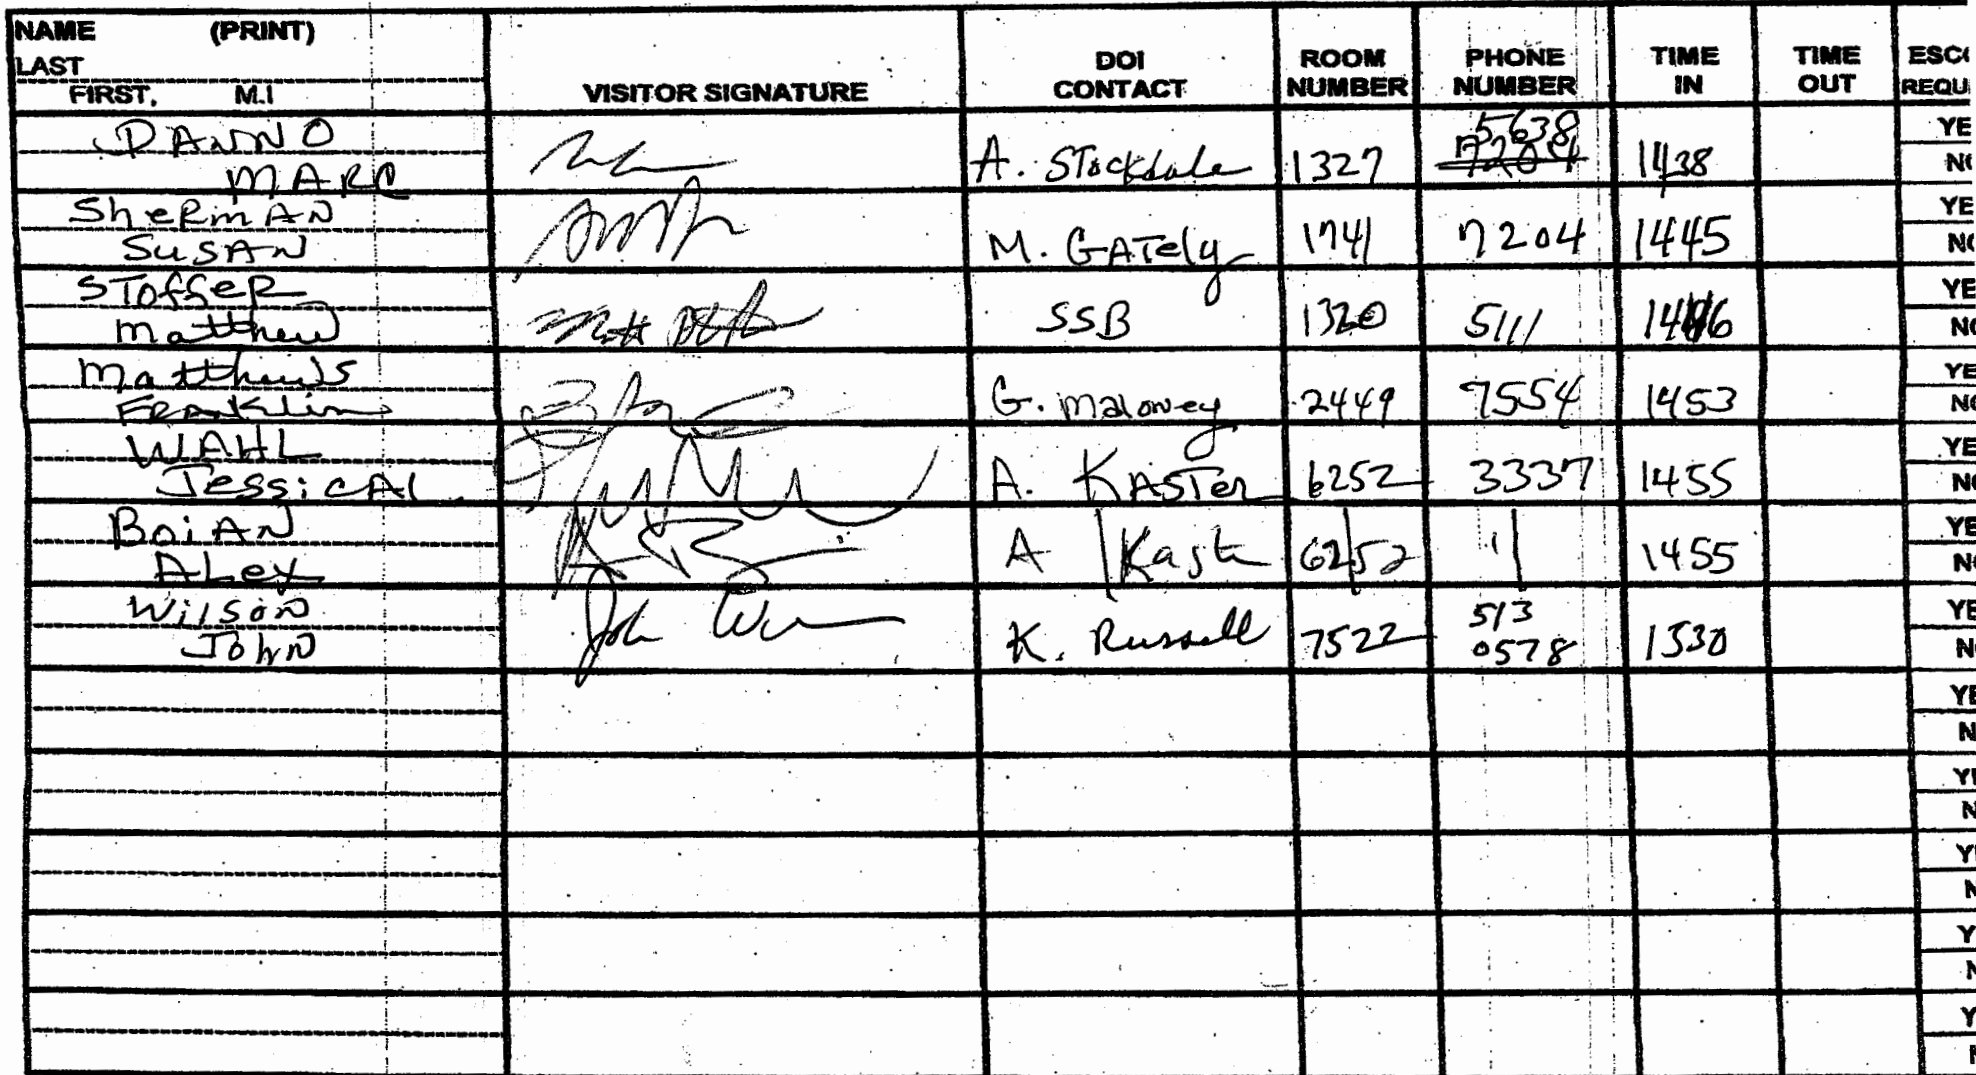 NAME (PRINT)
LAST
FIRST. M.I
VISITOR SIGNATURE
DOI
CONTACT
ROOM
NUMBER
PHONE
NUMBER
TIME
IN
TIME
OUT
ESC
REQU
DANNO
MARC
A. Stockdale 1327 5638 7204 1438
YE
NO
SheRmAN
SUSAN
M. GATely 1741 7204 1445
YE
NO
SToffeR
Matthew
SSB 1320 5111
YE
NO
Matthews
FRanklin
G. Maloney 2449 7554 1453
YE
NO
WAHL
JessicA
A. KASTer 6252 3337 1455
YE
NO
BoiAN
ALex
A Kast 6252 1455
YE
NO
Wilson
John
John K. Russell 7522 513 0578 1530
YE
NO
YE
N
YE
N
YE
N
Y
N
Y
N